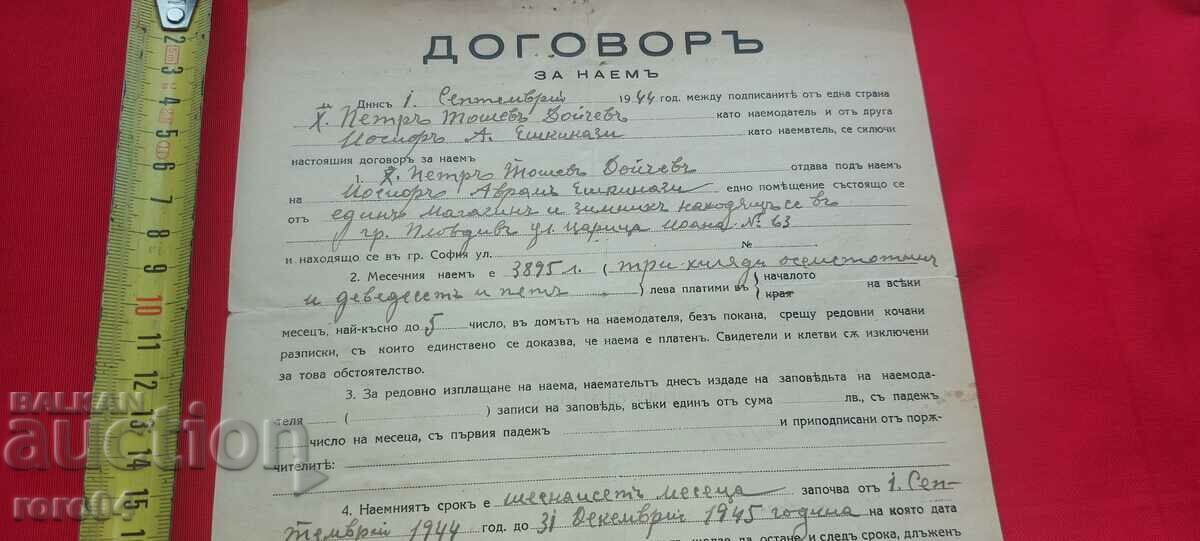 ДОГОВОРЪ
ЗА НАЕМЪ
Днисъ 1 Септемврий 1944 год. между подписанитѣ отъ една страна
Х. Петръ Тошевъ Дойчевъ като наемодатель и отъ друга
Иосифъ А. Ешкинази като наематель, се сключи
настоящия договоръ за наемъ
1. Х. Петръ Тошевъ Дойчевъ отдава подъ наемъ
на Иосифъ Аврамъ Ешкинази едно помѣщение състоящо се
отъ единъ магазинъ и зимникъ находящъ се въ
гр. Пловдивъ ул. Царица Иоана № 63
и находящо се въ гр. София ул. №
2. Месечния наемъ е 3895 л. (три хиляди осемстотинъ
и деведесетъ и петь) лева платими въ { началото края } на всѣки
месецъ, най-късно до 5 число, въ домътъ на наемодателя, безъ покана, срещу редовни кочани
разписки, съ които единствено се доказва, че наема е платенъ. Свидетели и клетви сѫ изключени
за това обстоятелство.
3. За редовно изплащане на наема, наемательтъ днесъ издаде на заповѣдьта на наемода-
теля ( ) записи на заповѣдь, всѣки единъ отъ сума лв., съ падежъ
число на месеца, съ първия падежъ и приподписани отъ порѫ-
чителитѣ:
4. Наемниятъ срокъ е шеснаисетъ месеца започва отъ 1. Сеп-
темврий 1944 год. до 31 Декемврий 1945 година на която дата
желае да остане и следъ срока, длъженъ
BALKAN
auction
roro04
2 3 4 5 6 7 8 9 10 11 12 13 14 15